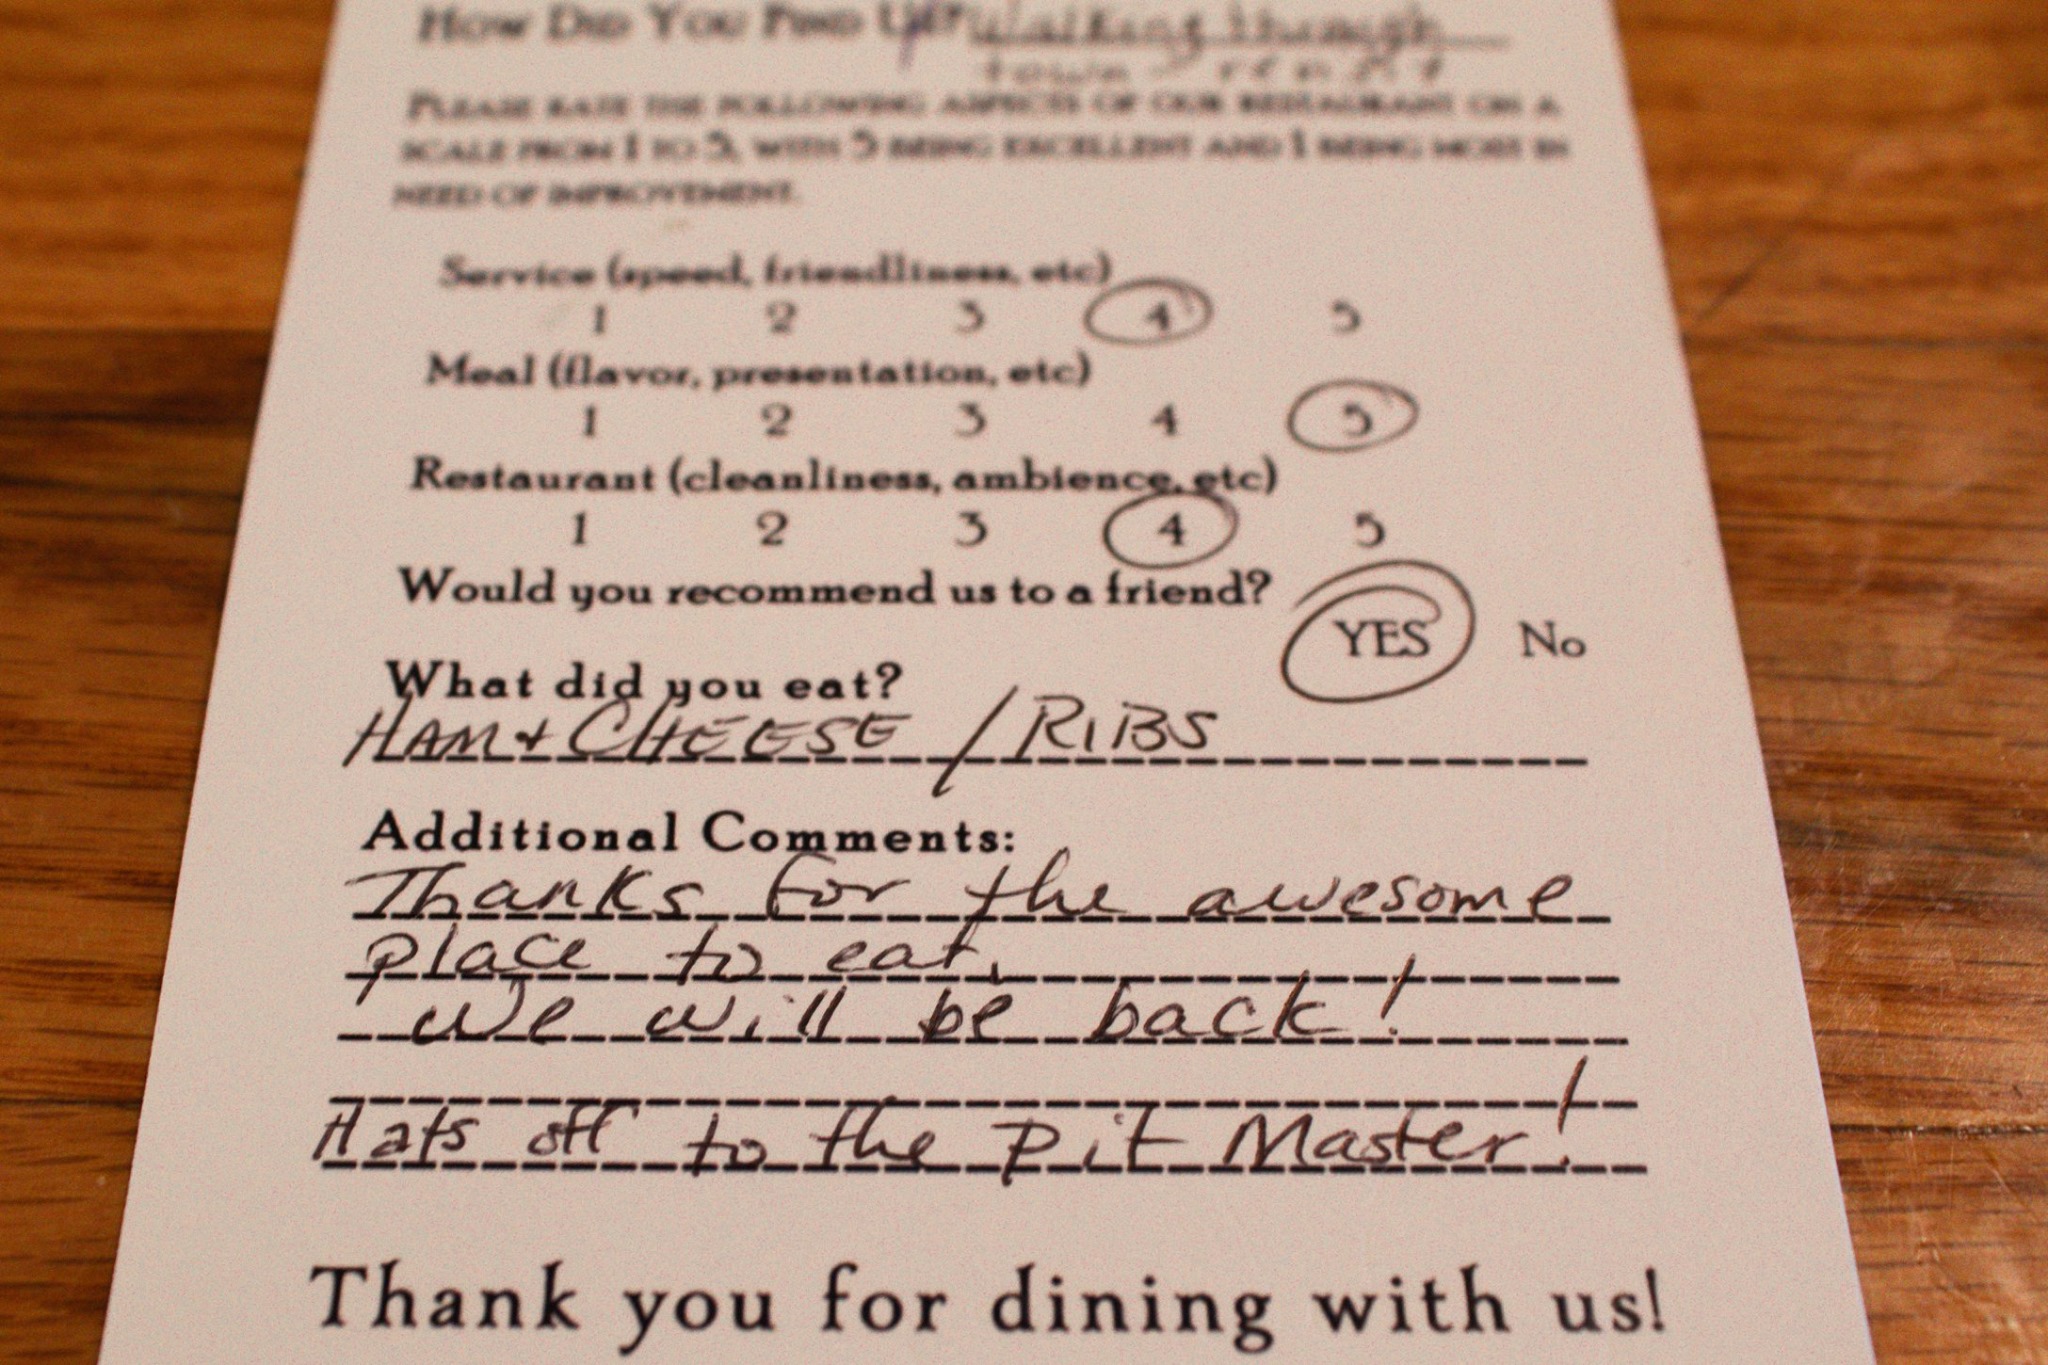 HOW DID YOU FIND US? Walking through
town
PLEASE RATE THE FOLLOWING ASPECTS OF OUR RESTAURANT ON A
SCALE FROM 1 TO 5, WITH 5 BEING EXCELLENT AND 1 BEING MOST IN
NEED OF IMPROVEMENT.
Service (speed, friendliness, etc)
1 2 3 4 5
Meal (flavor, presentation, etc)
1 2 3 4 5
Restaurant (cleanliness, ambience, etc)
1 2 3 4 5
Would you recommend us to a friend?
YES No
What did you eat?
HAM + CHEESE / RIBS
Additional Comments:
Thanks for the awesome
place to eat.
We will be back!
Hats off to the Pit Master!
Thank you for dining with us!